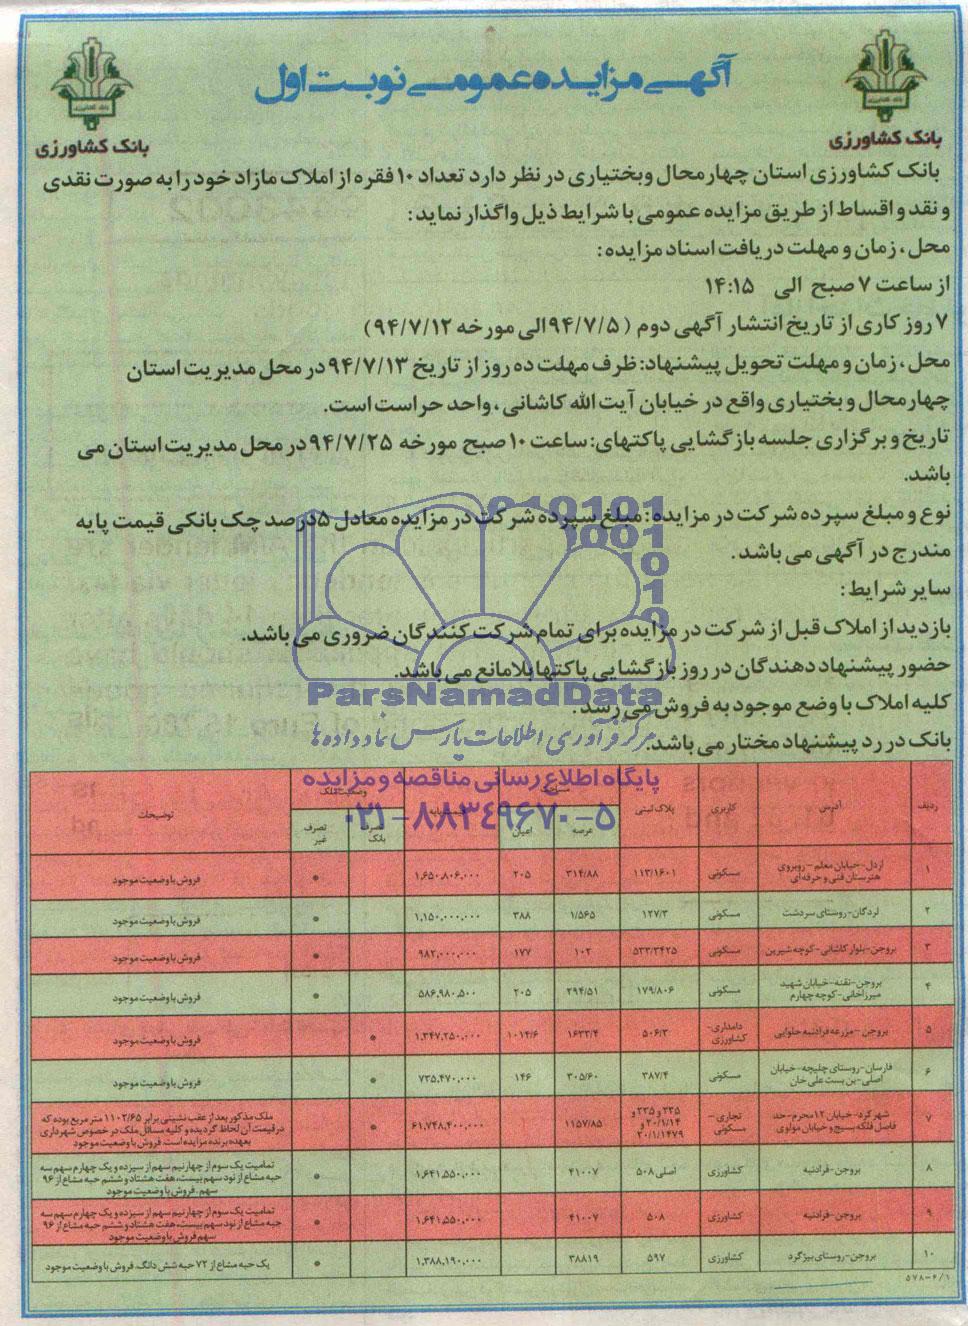 آگهی مزایده عمومی نوبت اول
بانک کشاورزی
بانک کشاورزی
بانک کشاورزی استان چهارمحال وبختیاری در نظر دارد تعداد ۱۰ فقره از املاک مازاد خود را به صورت نقدی
و نقد و اقساط از طریق مزایده عمومی با شرایط ذیل واگذار نماید:
محل، زمان و مهلت دریافت اسناد مزایده:
از ساعت ۷ صبح الی ۱۴:۱۵
۷ روز کاری از تاریخ انتشار آگهی دوم (۹۴/۷/۵ الی مورخه ۹۴/۷/۱۲)
محل، زمان و مهلت تحویل پیشنهاد: ظرف مهلت ده روز از تاریخ ۹۴/۷/۱۳ در محل مدیریت استان
چهارمحال و بختیاری واقع در خیابان آیت الله کاشانی، واحد حراست است.
تاریخ و برگزاری جلسه بازگشایی پاکتهای: ساعت ۱۰ صبح مورخه ۹۴/۷/۲۵ در محل مدیریت استان می
باشد.
نوع و مبلغ سپرده شرکت در مزایده: مبلغ سپرده شرکت در مزایده معادل ۵درصد چک بانکی قیمت پایه
مندرج در آگهی می باشد.
سایر شرایط:
بازدید از املاک قبل از شرکت در مزایده برای تمام شرکت کنندگان ضروری می باشد.
حضور پیشنهاد دهندگان در روز بازگشایی پاکتها بلامانع می باشد.
کلیه املاک با وضع موجود به فروش می رسد.
بانک در رد پیشنهاد مختار می باشد.
ParsNamadData
مرکز فرآوری اطلاعات پارس نماد داده ها
پایگاه اطلاع رسانی مناقصه و مزایده
۰۲۱-۸۸۳۴۹۶۷۰-۵
ردیف آدرس کاربری پلاک ثبتی عرصه اعیان تصرف بانک تصرف غیر توضیحات
۱ اردل-خیابان معلم-روبروی هنرستان فنی و حرفه ای مسکونی ۱۱۳/۱۶۰۱ ۳۱۴/۸۸ ۲۰۵ ۱,۶۵۰,۸۰۶,۰۰۰ فروش با وضعیت موجود
۲ لردگان-روستای سردشت مسکونی ۱۲۷/۳ ۱/۵۶۵ ۳۸۸ ۱,۱۵۰,۰۰۰,۰۰۰ فروش با وضعیت موجود
۳ بروجن-بلوار کاشانی-کوچه شیرین مسکونی ۵۳۳/۳۴۲۵ ۱۰۲ ۱۷۷ ۹۸۲,۰۰۰,۰۰۰ فروش با وضعیت موجود
۴ بروجن-نقنه-خیابان شهید میرزاخانی-کوچه چهارم مسکونی ۱۷۹/۸۰۶ ۲۹۴/۵۱ ۲۰۵ ۵۸۶,۹۸۰,۵۰۰ فروش با وضعیت موجود
۵ بروجن-مزرعه فرادنبه حلوایی دامداری-کشاورزی ۵۰۶/۳ ۱۶۳۳/۴ ۱۰۱۴/۶ ۱,۳۴۷,۲۵۰,۰۰۰ فروش با وضعیت موجود
۶ فارسان-روستای چلیچه-خیابان اصلی-بن بست علی خان مسکونی ۳۸۷/۴ ۳۰۵/۶۰ ۱۴۶ ۷۳۵,۴۷۰,۰۰۰ فروش با وضعیت موجود
۷ شهرکرد-خیابان ۱۲محرم-حد فاصل فلکه بسیج و خیابان مولوی تجاری-مسکونی ۲۳۵ و ۲۳۵ و ۲۰/۱/۱۴ و ۲۰/۱/۱۴۷۹ ۱۱۵۷/۸۵ ۶۱,۷۴۸,۴۰۰,۰۰۰ ملک مذکور بعد از عقب نشینی برابر ۱۱۰۲/۶۵ متر مربع بوده که در قیمت آن لحاظ گردیده و کلیه مسائل ملک در خصوص شهرداری بعهده برنده مزایده است. فروش با وضعیت موجود
۸ بروجن-فرادنبه کشاورزی اصلی ۵۰۸ ۴۱۰۰۷ ۱,۶۴۱,۵۵۰,۰۰۰ تمامیت یک سوم از چهارنیم سهم از سیزده و یک چهارم سهم سه حبه مشاع از نود سهم بیست، هفت هشتاد و ششم حبه مشاع از ۹۶ سهم. فروش با وضعیت موجود
۹ بروجن-فرادنبه کشاورزی ۵۰۸ ۴۱۰۰۷ ۱,۶۴۱,۵۵۰,۰۰۰ تمامیت یک سوم از چهارنیم سهم از سیزده و یک چهارم سهم سه حبه مشاع از نود سهم بیست، هفت هشتاد و ششم حبه مشاع از ۹۶ سهم فروش با وضعیت موجود
۱۰ بروجن-روستای بیژگرد کشاورزی ۵۹۷ ۳۸۸۱۹ ۱,۳۸۸,۱۹۰,۰۰۰ یک حبه مشاع از ۷۲ حبه شش دانگ. فروش با وضعیت موجود
۵۷۸-۶/۱